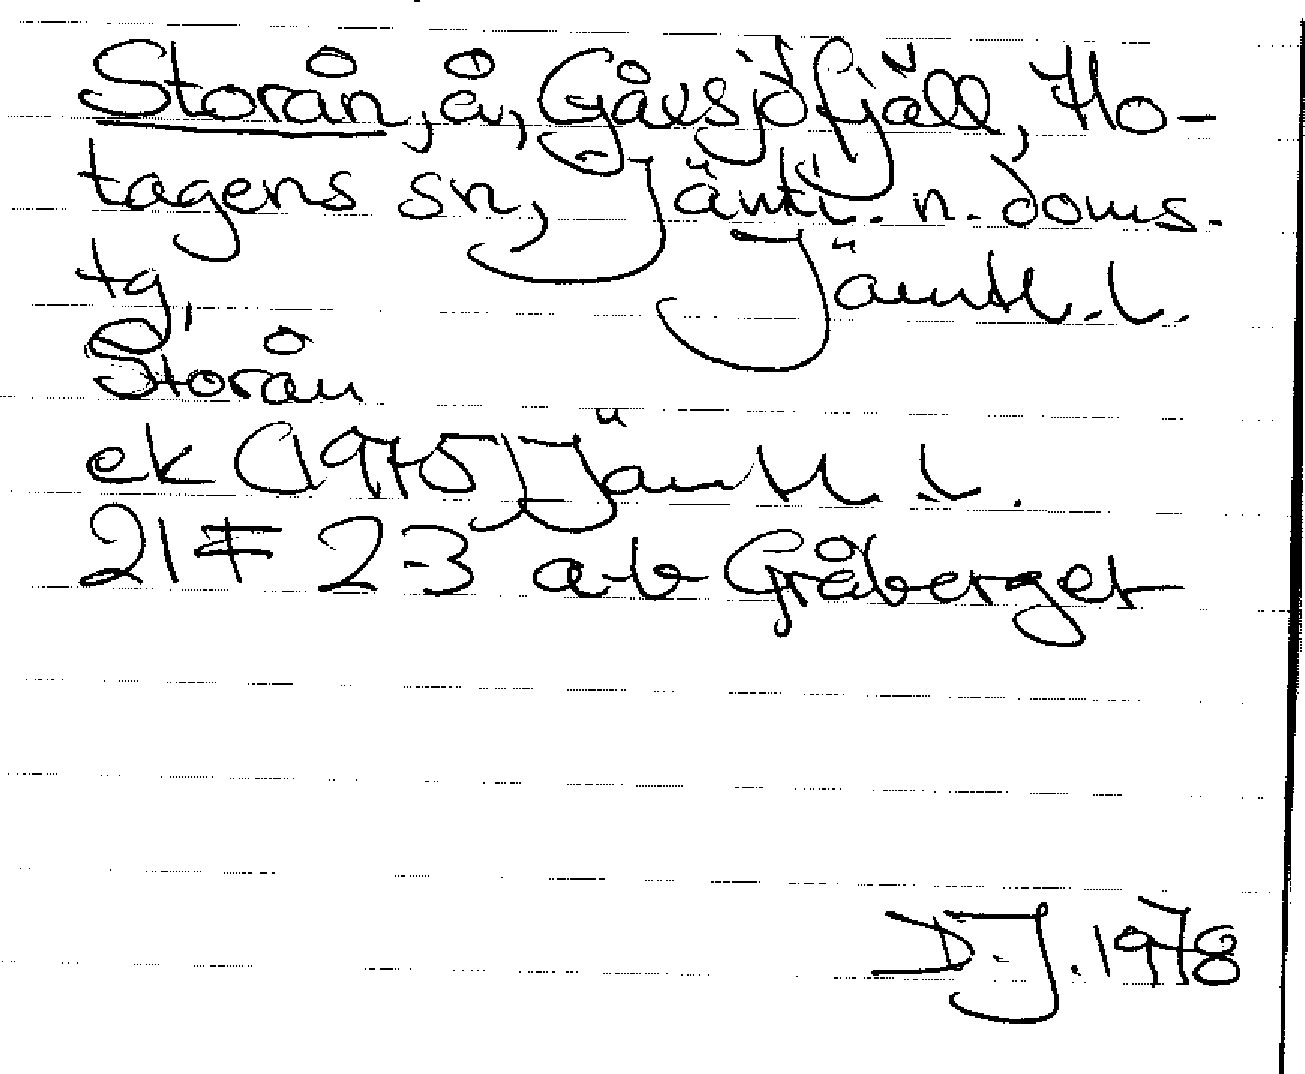 Storån, å, Gåxsjöfjäll, Ho-
tagens sn, Jämtl. n. doms.
tg, Jämtl. l.
Storån
ek (1975) Jämtl l.
21F 2-3 a-b Gråberget
D.J. 1978